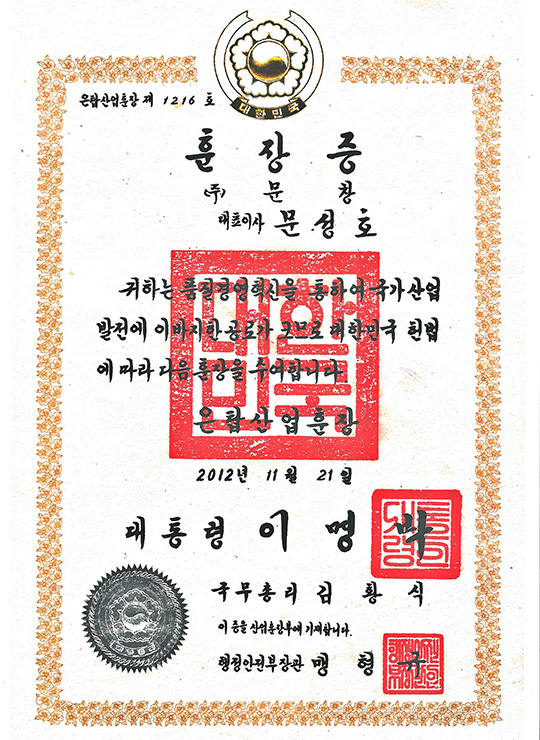 대한민국
은탑산업훈장 제 1216 호
훈장증
(주) 문창
대표이사 문성호
귀하는 품질경영혁신을 통하여 국가산업
발전에 이바지한 공로가 크므로 대한민국 헌법
에 따라 다음 훈장을 수여합니다.
은탑산업훈장
2012년 11월 21일
대통령 이명박
국무총리 김황식
이 증을 산업훈장부에 기재합니다.
행정안전부장관 맹형규